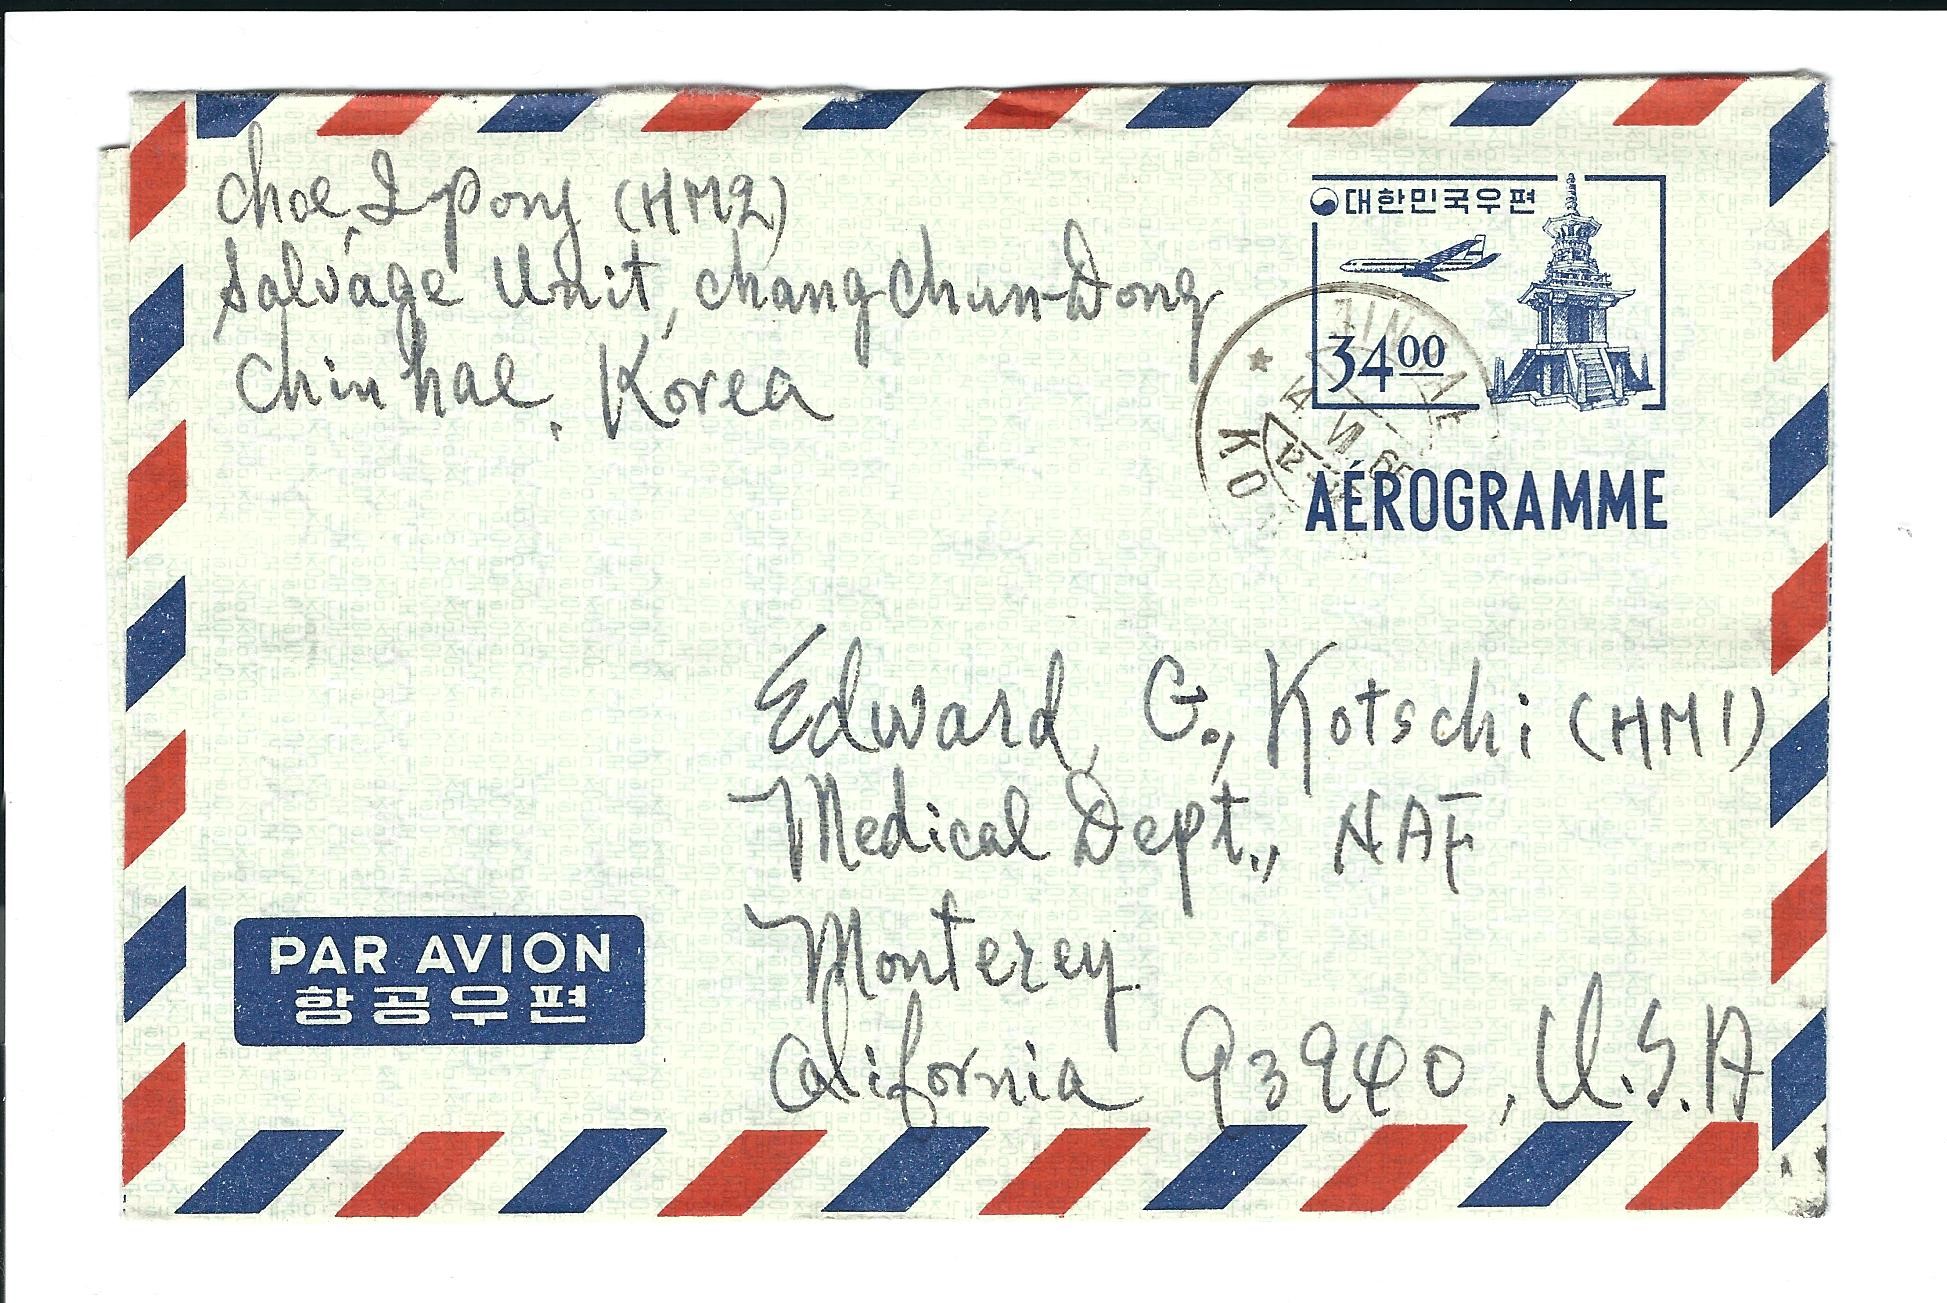 Choe, I pong (HM2)
Salvage Unit, Chang Chun-Dong
Chin hae, Korea
대한민국우편
34 00
JINHAE
14. VII. 65
12
KO
AÉROGRAMME
Edward, G., Kotschi (HM1)
Medical Dept., NAF
Monterey
California 93940, U.S.A
PAR AVION
항공우편